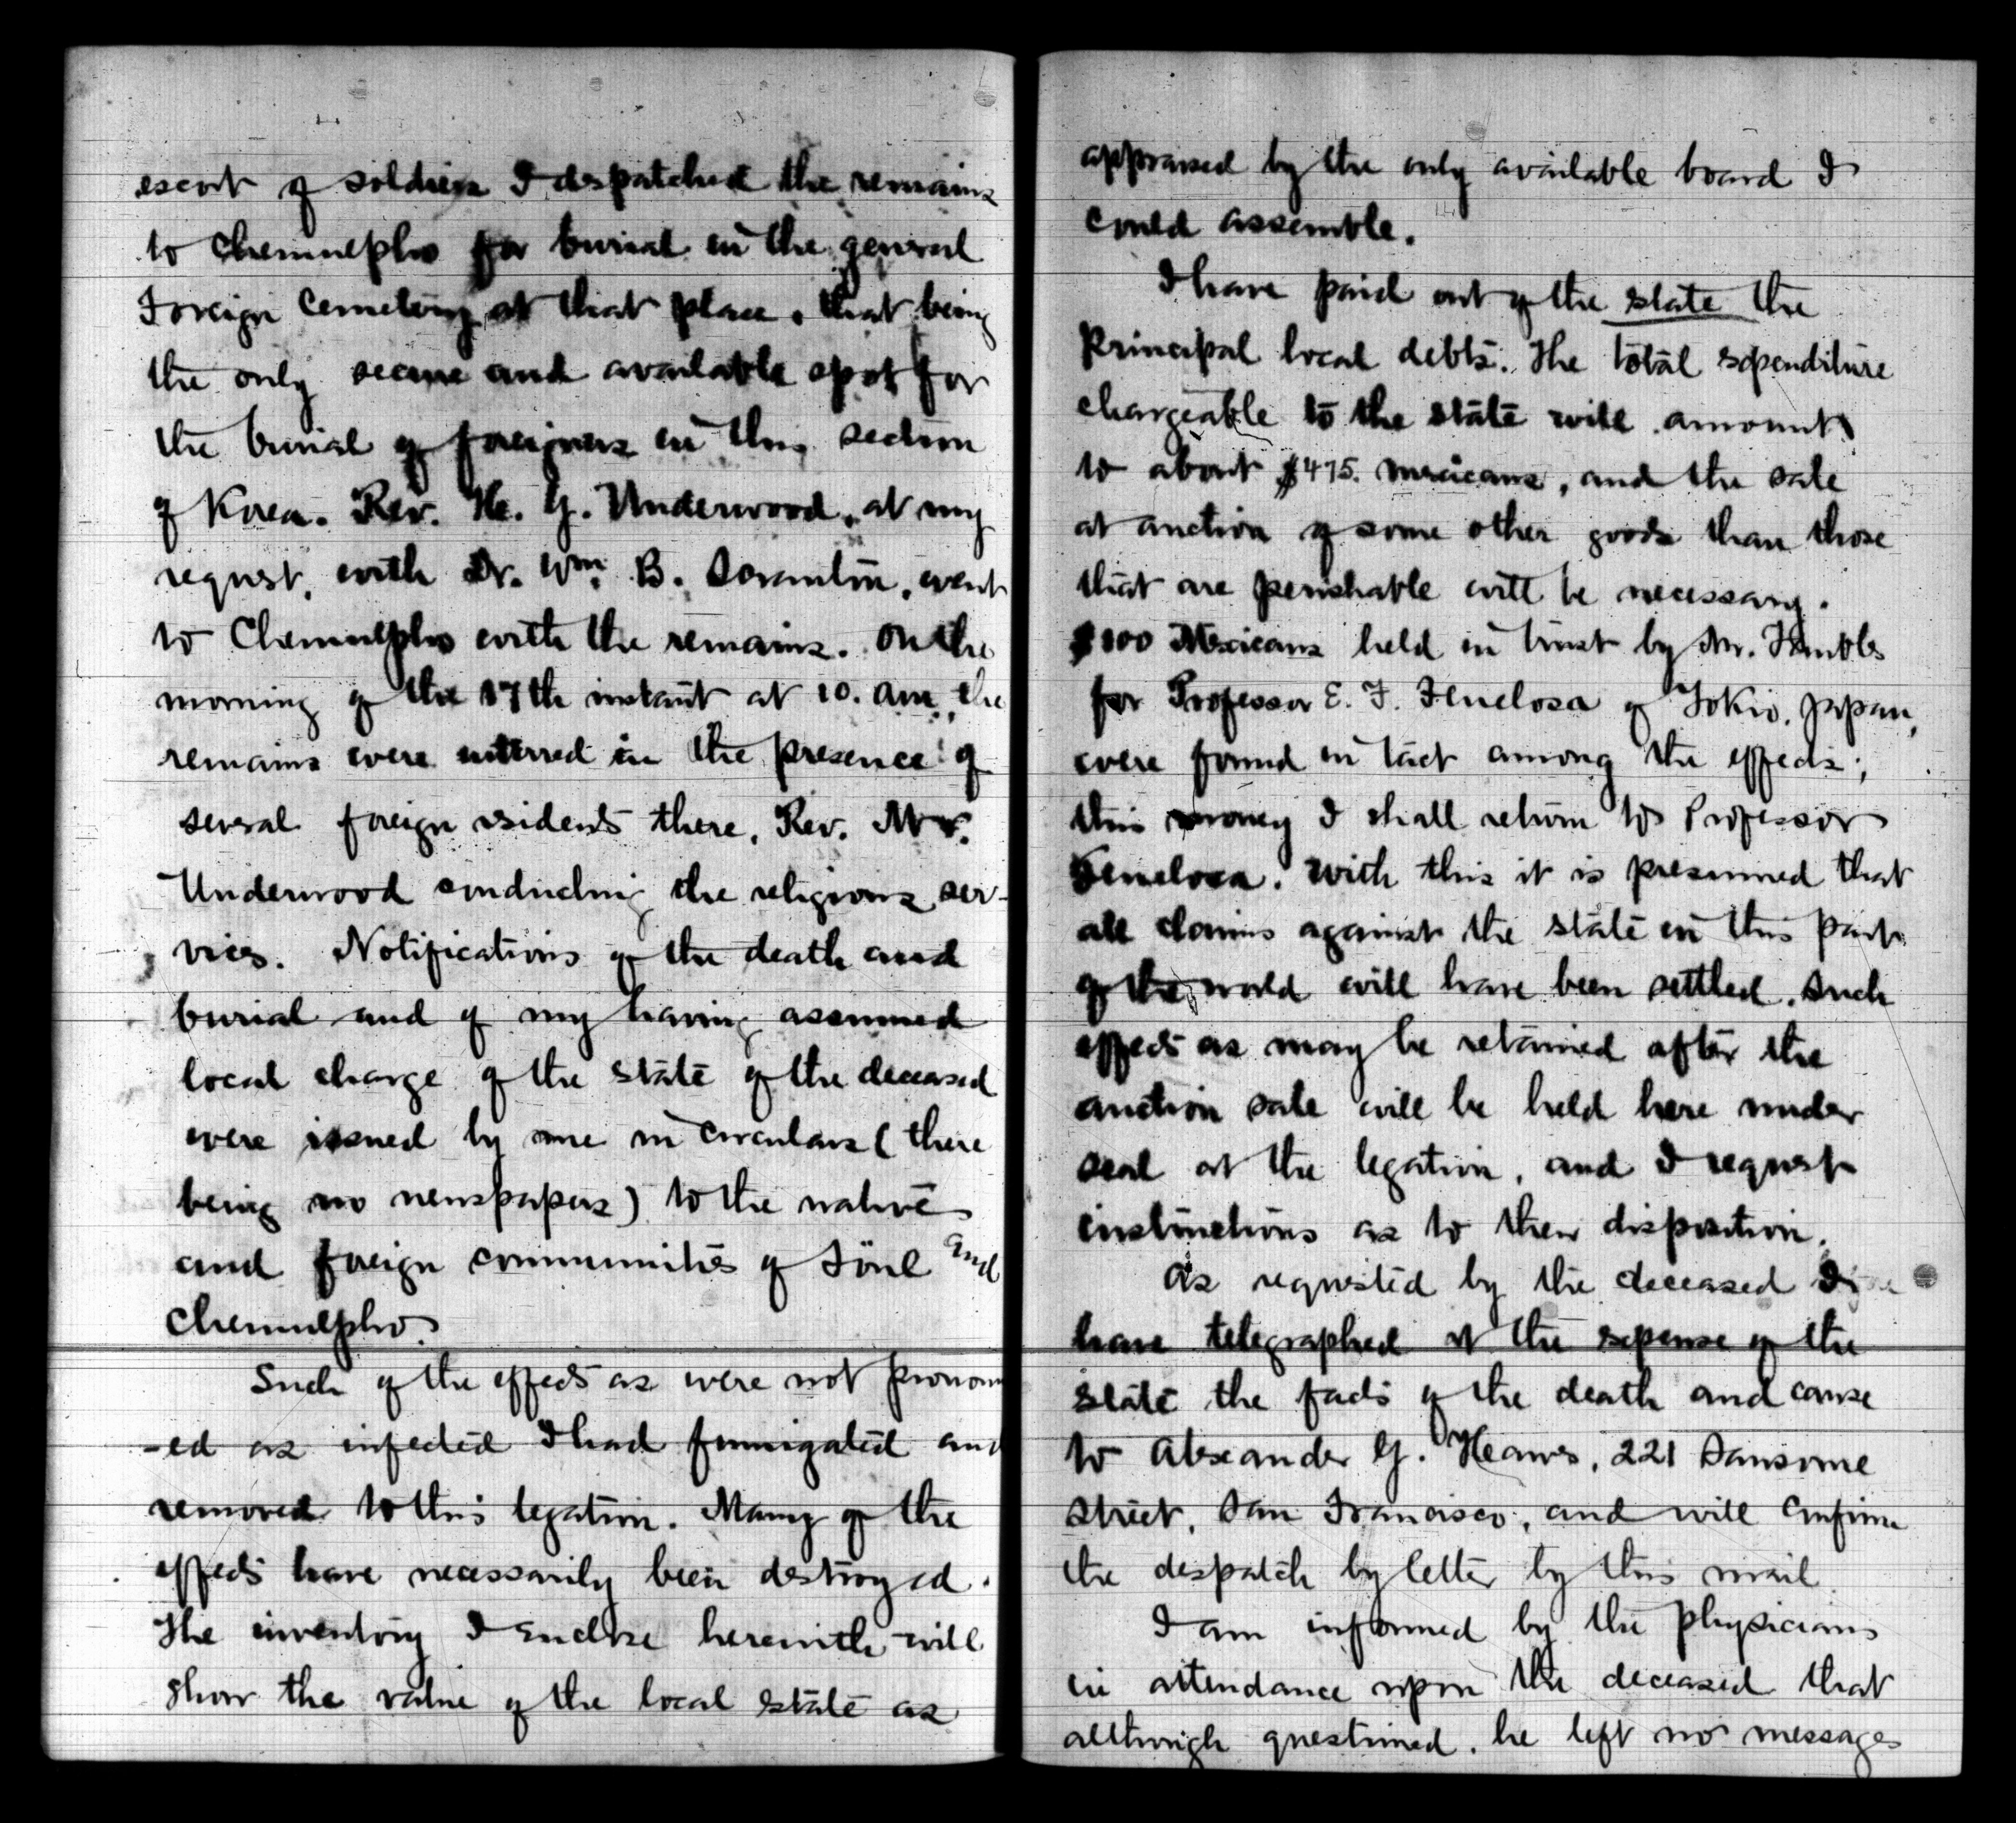 escort of soldiers I despatched the remains
to Chemulpho for burial in the general
Foreign Cemetery at that place, that being
the only secure and available spot for
the burial of foreigners in this section
of Korea. Rev. H. G. Underwood, at my
request, with Dr. Wm. B. Scranton, went
to Chemulpho with the remains. On the
morning of the 17th instant at 10. am, the
remains were interred in the presence of
several foreign residents there, Rev. Mr.
Underwood conducting the religious ser-
vices. Notifications of the death and
burial and of my having assumed
local charge of the estate of the deceased
were issued by me in circulars (there
being no newspapers) to the native
and foreign communities of Söul and
Chemulpho.
Such of the effects as were not pronounc
-ed as infected I had fumigated and
removed to this legation. Many of the
effects have necessarily been destroyed.
The inventory I enclose herewith will
show the value of the local estate as
appraised by the only available board I
could assemble.
I have paid out of the estate the
principal local debts. The total expenditure
chargeable to the estate will amount
to about $475. Mexicans, and the sale
at auction of some other goods than those
that are perishable will be necessary.
$100 Mexicans held in trust by Mr.
for Professor E. F. Fenelosa of Tokio, Japan,
were found in tact among the effects;
this money I shall return to Professor
Fenelosa. With this it is presumed that
all claims against the estate in this part
of the world will have been settled. Such
effects as may be retained after the
auction sale will be held here under
seal at the legation, and I request
instructions as to their disposition.
As requested by the deceased I
have telegraphed at the expense of the
estate the facts of the death and cause
to Alexander G. Hawes, 221 Sansome
Street, San Francisco, and will confirm
the despatch by letter by this mail.
I am informed by the physicians
in attendance upon the deceased that
although questioned, he left no messages